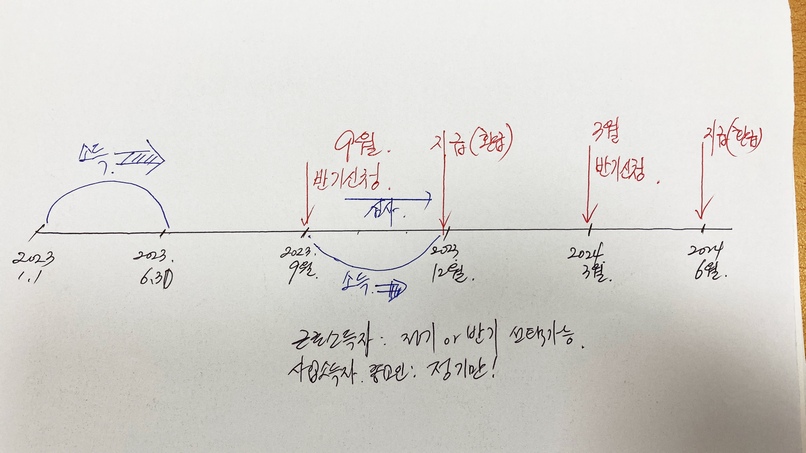 소득.
9월.
반기신청.
심사.
지급(환급)
3월
반기신청.
지급(환급)
2023
1.1
2023.
6.30
2023.
9월.
소득.
2023
12월.
2024
3월.
2024
6월.
근로소득자 : 정기 or 반기 선택가능.
사업소득자. 종교인 : 정기만!